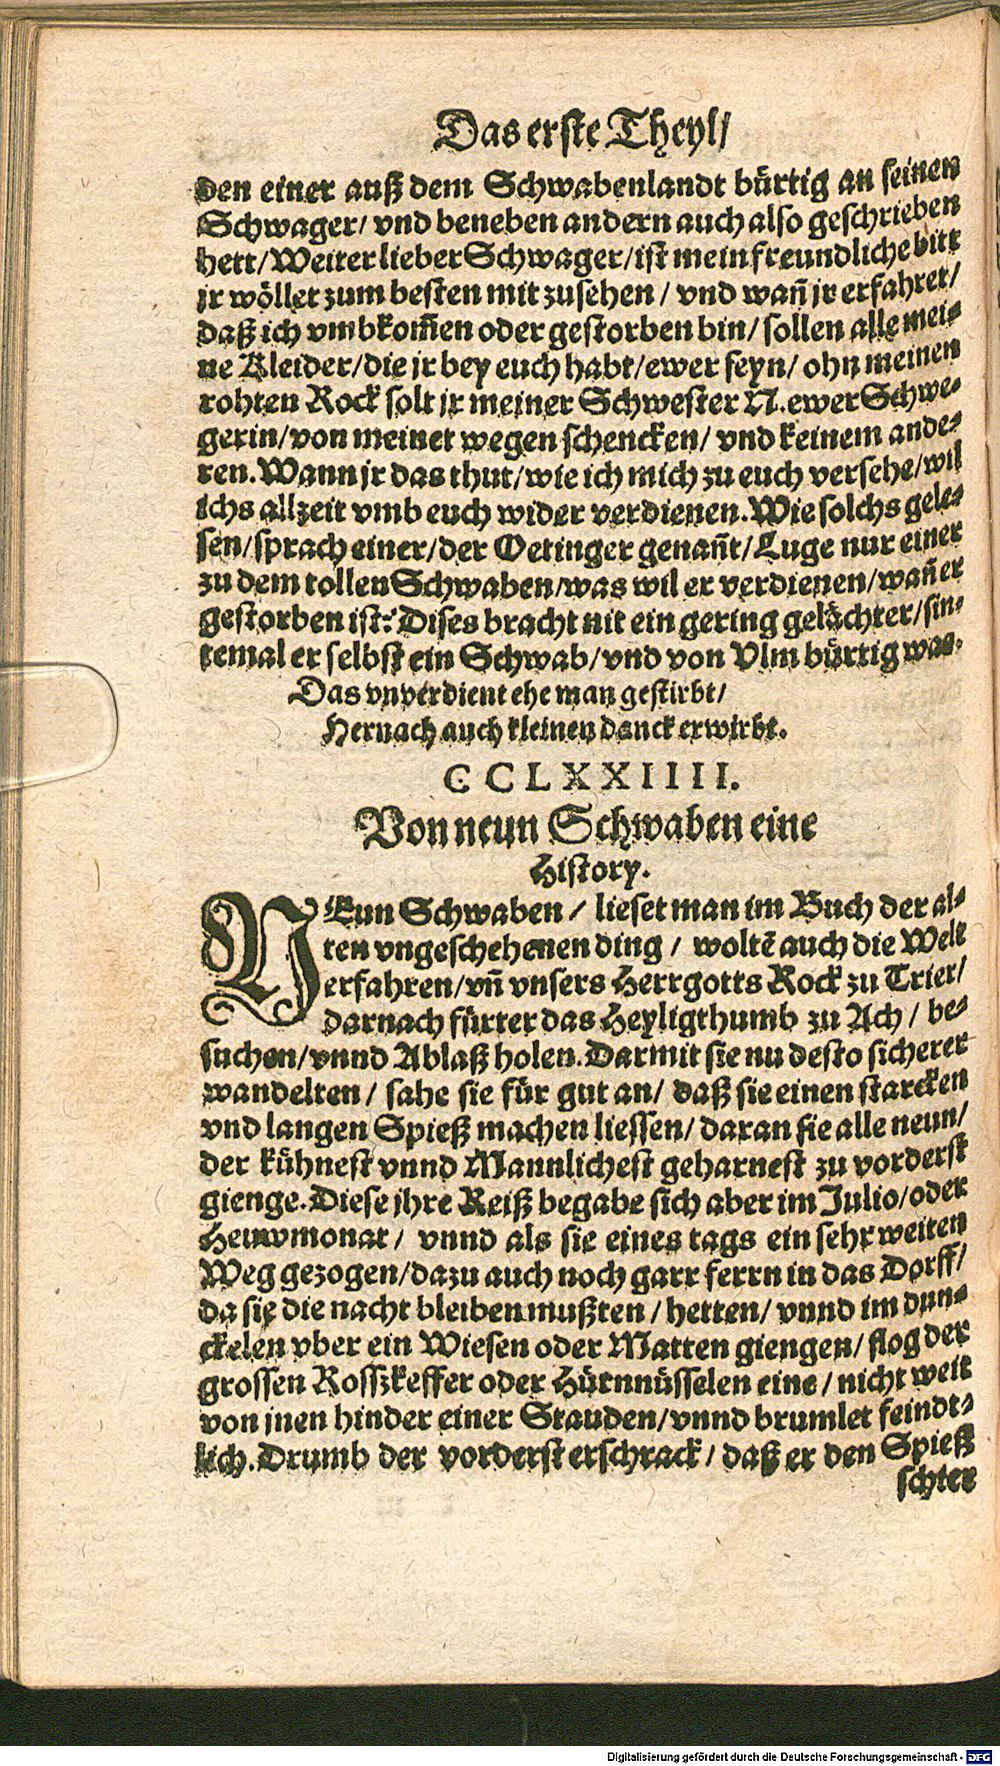 Das erste Theyl/
den einer auß dem Schwabenlandt bürtig an seinen
Schwager/ vnd beneben andern auch also geschrieben
hett/ Weiter lieber Schwager/ ist mein freundliche bitt
jr wöllet zum besten mit zusehen / vnd wañ jr erfahret/
daß ich vmbkom̃en oder gestorben bin/ sollen alle mei⸗
ne Kleider/ die jr bey euch habt/ ewer seyn/ ohn meinen
rohten Rock solt jr meiner Schwester N. ewer Schwe⸗
gerin/ von meinet wegen schencken/ vnd keinem ande⸗
ren. Wann jr das thut/ wie ich mich zu euch versehe/ wil
ichs allzeit vmb euch wider verdienen. Wie solchs gele⸗
sen/ sprach einer/ der Oetinger genañt/ Luge nur einer
zu dem tollen Schwaben/ was wil er verdienen/ wañ er
gestorben ist? Dises bracht nit ein gering gelächter/ sin⸗
temal er selbst ein Schwab/ vnd von Vlm bürtig was.
Das vnverdient ehe man gestirbt/
Hernach auch kleinen danck erwirbt.
CCLXXIIII.
Von neun Schwaben eine
History.
NEun Schwaben / lieset man im Buch der al⸗
ten vngeschehenen ding / woltẽ auch die Welt
erfahren/ vñ vnsers Herrgotts Rock zu Trier/
darnach fürter das Heyligthumb zu Ach / be⸗
suchen/ vnnd Ablaß holen. Darmit sie nu desto sicherer
wandelten / sahe sie für gut an/ daß sie einen starcken
vnd langen Spieß machen liessen/ daran sie alle neun/
der kühnest vnnd Mannlichest geharnest zu vorderst
gienge. Diese jhre Reiß begabe sich aber im Julio/ oder
Heuwmonat / vnnd als sie eines tags ein sehr weiten
Weg gezogen/ dazu auch noch garr ferrn in das Dorff/
da sie die nacht bleiben mußten / hetten/ vnnd im dun⸗
ckelen vber ein Wiesen oder Matten giengen/ flog der
grossen Rosszkeffer oder Hürnnüsselen eine / nicht weit
von jnen hinder einer Stauden/ vnnd brumlet feindt⸗
lich. Drumb der vorderst erschrack / daß er den Spieß
schter
Digitalisierung gefördert durch die Deutsche Forschungsgemeinschaft - DFG